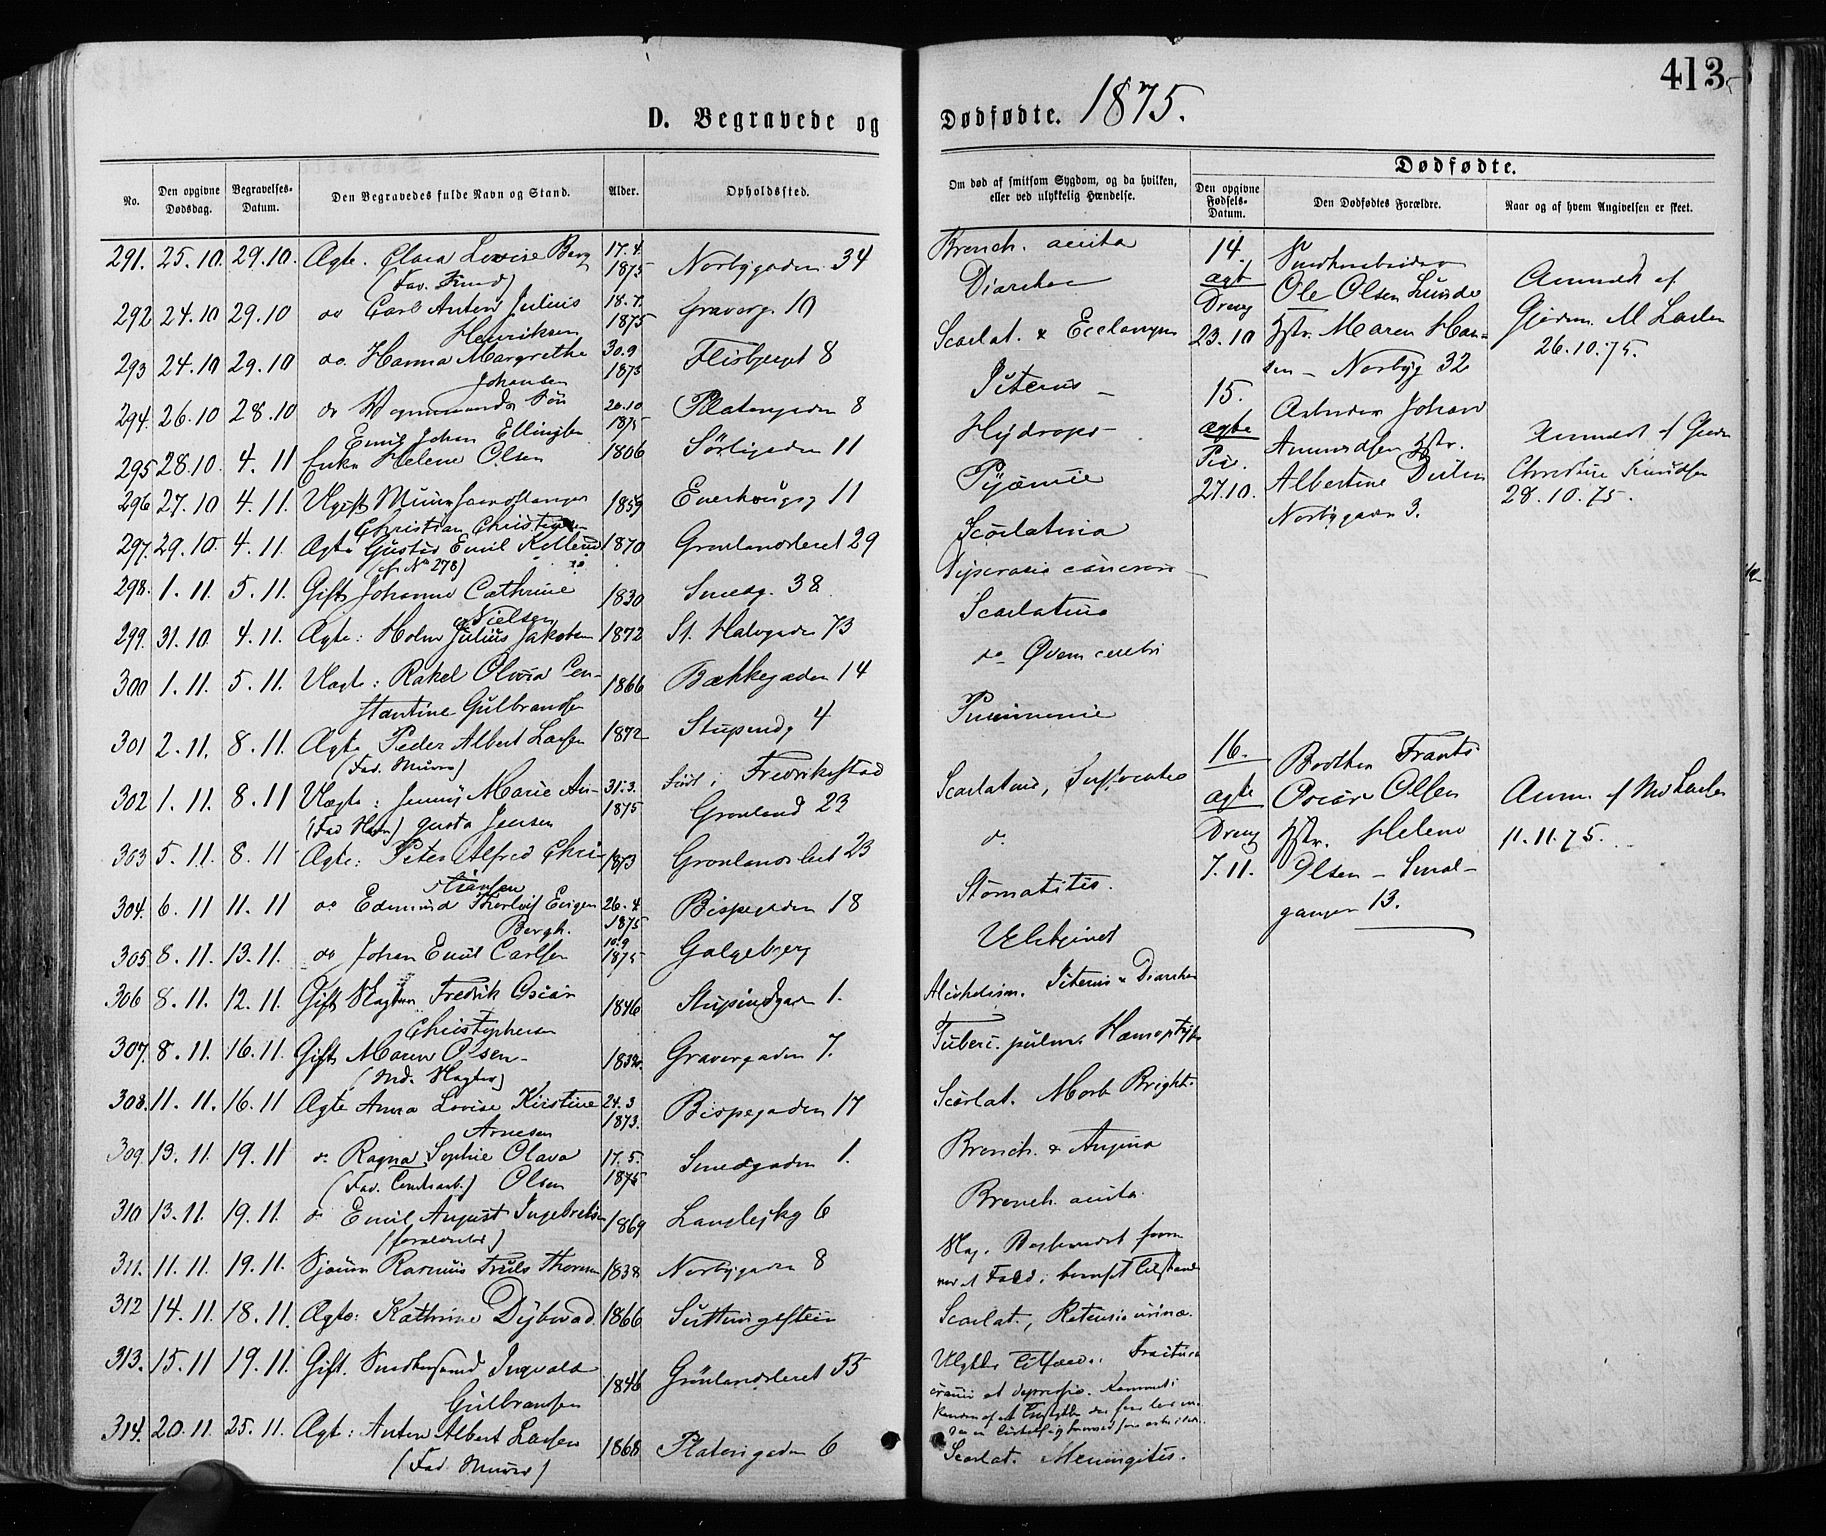 413
D. Begravede og
Dødfødte. 1875.
No.
Den opgivne Dødsdag.
Begravelses-Datum.
Den Begravedes fulde Navn og Stand.
Alder.
Opholdssted.
Om død af smitsom Sygdom, og da hvilken, eller ved ulykkelig Hændelse.
Dødfødte.
Den opgivne Fødsels-Datum.
Den Dødfødtes Forældre.
Naar og af hvem Angivelsen er skeet.
291. 25.10. 29.10. Ægte. Clara Lovise Berg 17.4. 1875 Norbygaden 34
292 24.10 29.10 do Carl Anton Julius 18.7. 1875 Graverg. 10
Henriksen
293 24.10 29.10 do. Hanna Margrethe 30.9 1875 Flisbjergt 8
Johansen
294. 26.10 28.10 do 26.10 1875 Platougaden 8
Emil Johan Ellingsen
295 28.10. 4.11 Enke Helene Olsen 1806 Sörligaden 11
296 27.10 4.11. Ugift 1859 Enerhougsg 11
Christian Christensen
297. 29.10. 4.11. Ægte Gustav Emil 1870 Grønlandsleret 29
(cfr No 278)
298. 1.11. 5.11. Gift Johanne Cathrine 1830 Smedg. 38
Nielsen
299. 31.10 4.11. Ægte: Holm Julius Jakobsen 1872 St. Halvgaden 73
300 1.11. 5.11. Uægte: Rakel Olivia Con- 1866 Bækkegaden 14
stantine Gulbrandsen
301 2.11. 8.11. Ægte Peder Albert Larsen 1872 Stupendg 4
(Fad. Murer)
302 1.11. 8.11 Uægte: Jenny Marie Au- 31.3. 1875 Født i Fredrikstad
gusta Jensen Grønland 23
303 5.11. 8.11 Ægte: Peter Alfred Chri- 1873 Grønlandsleret 23
stiansen
304. 6.11 11.11 do Edmund Thorleif Eugen 26.4. 1875 Bispegaden 18
Bergh.
305. 8.11. 13.11. do Johan Emil Carlsen 10.9 1875 Galgeberg
306 8.11. 12.11. Gift Slagter Fredrik Oscar 1846 Stupendgaden 1.
Christophersen
307. 8.11. 16.11. Gift Maren Olsen 1832 Gravergaden 7.
(Md. Slagter)
308. 11.11. 16.11 Ægte Anna Lovise Kirstine 24.3 1873. Bispegaden 17
Arnesen
309. 13.11. 19.11 do. Ragna Sophie Olava 17.5. 1875 Smedgaden 1.
Olsen
310 13.11. 19.11. do Emil August Ingebretsen 1869 Langleikg 6
311. 11.11. 19.11. Sjøm Rasmus Truls Thorsen 1838 Norbygaden 8
312 14.11. 18.11. Ægte: Kathrine Dybwad 1866 Suttungsstein
313. 15.11 19.11. Gift. Snedkersvend Ingvald 1846 Grønlandsleret 55
Gulbransen
314. 20.11. 25.11. Ægte: Anton Albert Larsen 1868 Platougaden 6
(Fad. Murer)
Bronch. acuta
Diarrhoe
Scarlat. & Eclampsi
Icterus
Hydrops
Pyæmie
Scarlatina
Dyscrasia cancrosa
Scarlatina
do Ødem cerebri
Pneumonie
Scarlatina, Suffocatio
do.
Stomatitis.
Ubekjendt
Alcoholism. Icterus & Diarrhoe
Tuberc. pulm. Hæmoptyse
Scarlat. Morb Brighti
Bronch. & Angina
Bronch. acuta.
Scarlat., Retensio urinæ.
Ulykkestilfælde. Fractura
cranii et depressio.
Scarlat. Meningitis.
14.
ægte
Dreng
23.10
Snedkersvend
Ole Olsen Lunde
Hstr. Maren Han-
sen - Norbyg 32
Anmeldt af
Gjordm. M Larsen
26.10.75.
15.
ægte
Pige.
27.10.
Arbeider Johan
Amundsen Hstr.
Albertine
Norbygaden 3.
Anmeldt af Gjordm
Christine Knudsen
28.10.75.
16.
ægte
Dreng
7.11.
Frants
Oscar Olsen
Hstr. Helene
Olsen - Smal-
gangen 13.
Anm. af Md Larsen
11.11.75.